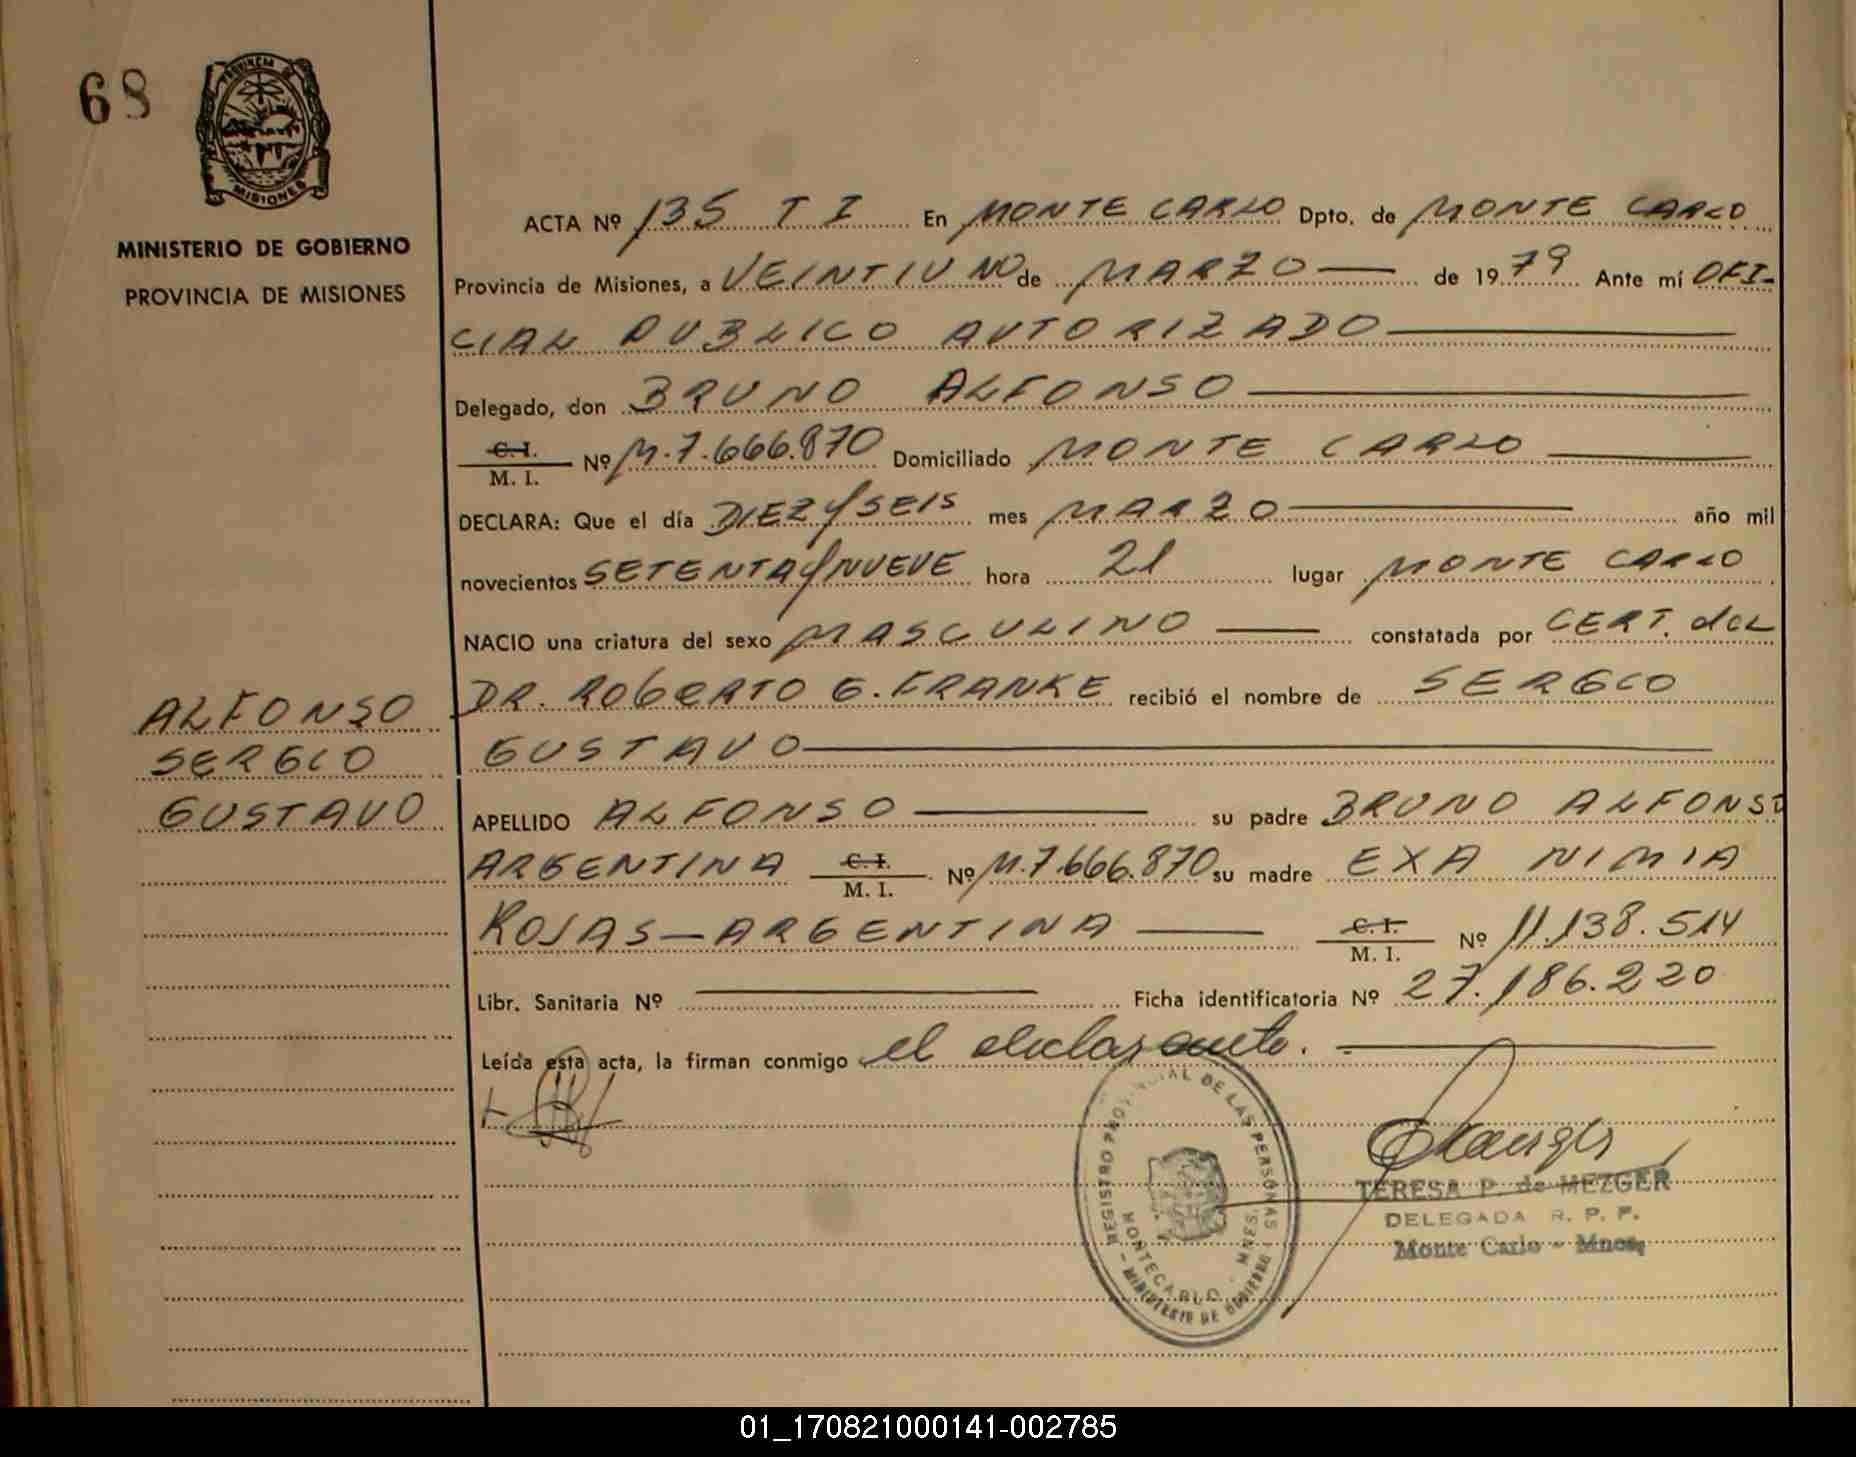 68
PROVINCIA DE
MISIONES
MINISTERIO DE GOBIERNO
PROVINCIA DE MISIONES
ACTA Nº 135 T I En MONTE CARLO Dpto. de MONTE CARLO
Provincia de Misiones, a VEINTIUNO de MARZO de 1979 Ante mí OFI-
CIAL PUBLICO AUTORIZADO
Delegado, don BRUNO ALFONSO
C.I.
M. I. Nº M.7.666.870 Domiciliado MONTE CARLO
DECLARA: Que el día DIEZ y SEIS mes MARZO año mil
novecientos SETENTA y NUEVE hora 21 lugar MONTE CARLO
NACIO una criatura del sexo MASCULINO constatada por CERT. del
DR. ROBERTO G. FRANKE recibió el nombre de SERGIO
GUSTAVO
ALFONSO
SERGIO
GUSTAVO
APELLIDO ALFONSO su padre BRUNO ALFONSO
ARGENTINA C.I.
M. I. Nº M.7.666.870 su madre EXA NIMIA
ROJAS - ARGENTINA C.I.
M. I. Nº 11.138.514
Libr. Sanitaria Nº Ficha identificatoria Nº 27.186.220
Leída esta acta, la firman conmigo el declarante.
REGISTRO PROVINCIAL DE LAS PERSONAS
MONTECARLO - MNES.
- MINISTERIO DE GOBIERNO
TERESA P. de MEZGER
DELEGADA R. P. P.
Monte Carlo - Mnes.
01_170821000141-002785